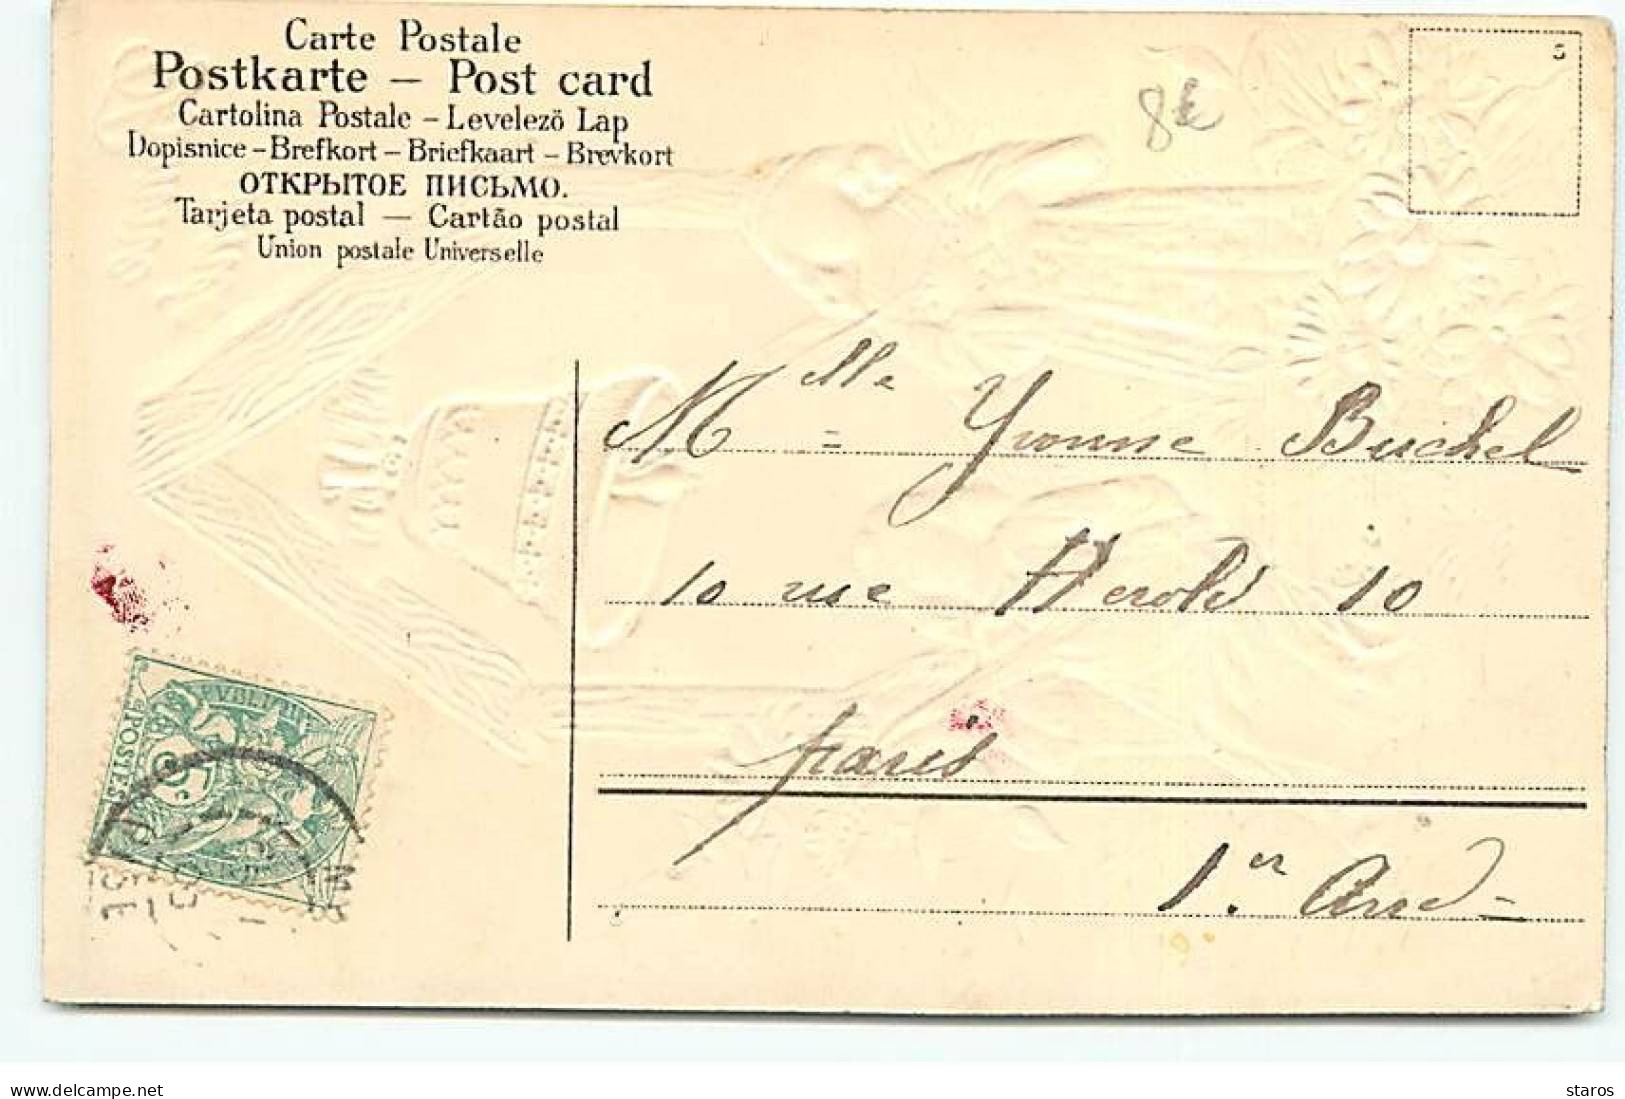 Carte Postale
Postkarte – Post card
Cartolina Postale – Levelezö Lap
Dopisnice – Brefkort – Briefkaart – Brevkort
ОТКРЫТОЕ ПИСЬМО.
Tarjeta postal — Cartão postal
Union postale Universelle
3
8€
Mlle = Yvonne Buschel
10 rue Herold 10
paris
1.er Arrd -
POSTES
delcampe.net
staros